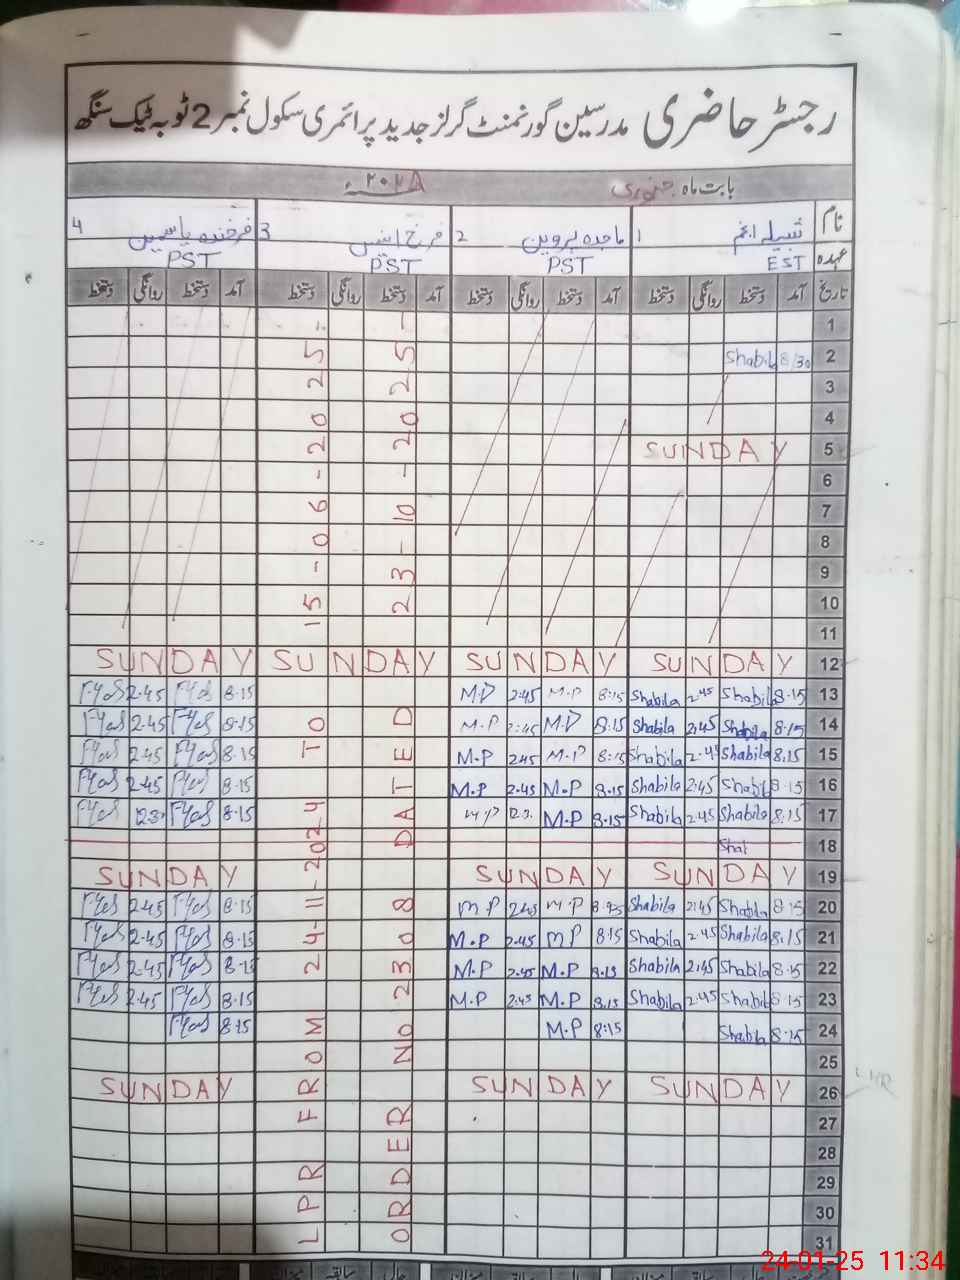 رجسٹر حاضری مدرسین گورنمنٹ گرلز جدید پرائمری سکول نمبر 2 ٹوبہ ٹیک سنگھ
بابت ماہ جنوری ۲۰۲۵ء
نام 1 شبیلہ انجم 2 ماجدہ پروین 3 فرخ 4 فرخندہ یاسمین
عہدہ EST PST PST PST
تاریخ آمد دستخط روانگی دستخط آمد دستخط روانگی دستخط آمد دستخط روانگی دستخط آمد دستخط روانگی دستخط
1
2 8/30 Shabila
3
4
5 SUNDAY
6
7
8
9
10
11
12 SUNDAY SUNDAY SUNDAY SUNDAY
13 8.15 Shabila 2.45 Shabila 8:15 M.P 2.45 M.P 8.15 2.45
14 8.15 Shabila 2.45 Shabila 8.15 M.P 2.45 M.P 8.15 2.45
15 8.15 Shabila 2.45 Shabila 8:15 M.P 2.45 M.P 8.15 2.45
16 8.15 Shabila 2.45 Shabila 8.15 M.P 2.45 M.P 8.15 2.45
17 8.15 Shabila 2.45 Shabila 8.15 M.P M.P 8.15
18 Shab
19 SUNDAY SUNDAY SUNDAY
20 8.15 Shabila 2.45 Shabila 8.15 M.P 2.45 M.P 8.15 2.45
21 8.15 Shabila 2.45 Shabila 8.15 M.P 2.45 M.P 8.15 2.45
22 8.15 Shabila 2.45 Shabila 8.15 M.P 2.45 M.P 8.15 2.45
23 8.15 Shabila 2.45 Shabila 8.15 M.P 2.45 M.P 8.15 2.45
24 8.15 Shabila 8:15 M.P 8.15
25
26 SUNDAY SUNDAY SUNDAY
27
28
29
30
31
LPR FROM 24-11-2024 TO 15-06-2025
ORDER No 2308 DATED 23-10-2025
24-01-25 11:34